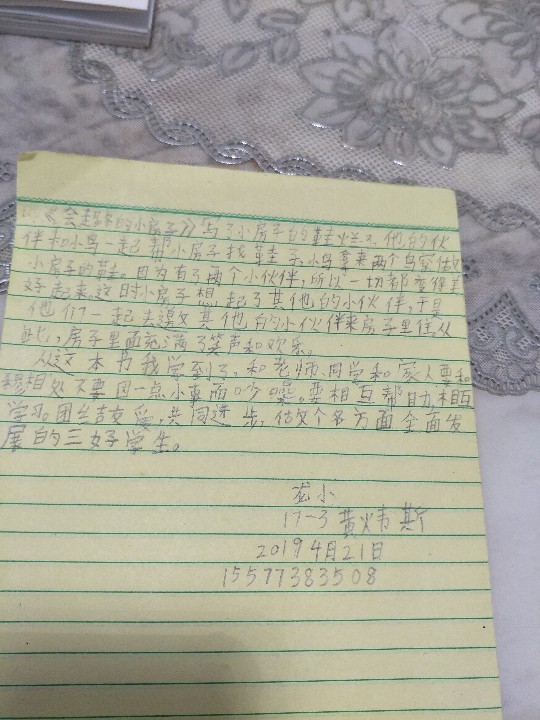 《会走路的小房子》写了小房子的鞋烂了,他的伙
伴和小鸟一起帮小房子找鞋子,小鸟拿来两个鸟窝做
小房子的鞋。因为有了两个小伙伴,所以一切都变得美
好起来。这时小房子想起了其他的小伙伴,于是
他们一起去邀请其他的小伙伴来房子里住从
此,房子里面充满了笑声和欢乐。
从这本书我学到了,和老师、同学和家人要和
睦相处不要因一点小事而吵嘴。要相互帮助相互
学习。团结友爱,共同进步,做个各方面全面发
展的三好学生。
龙小
17-3 黄炜斯
2019 4月21日
15577383508